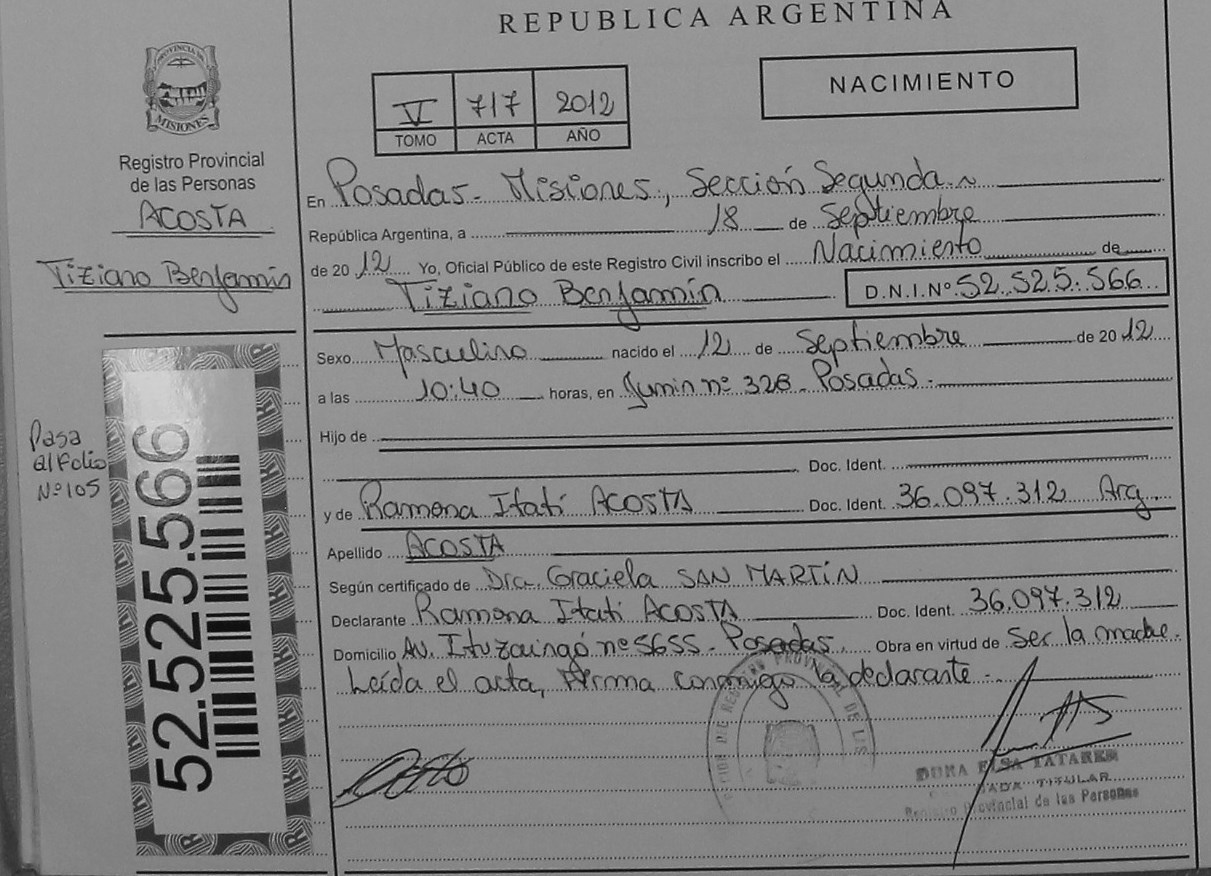 REPUBLICA ARGENTINA
PROVINCIA DE
MISIONES
Registro Provincial
de las Personas
ACOSTA
Tiziano Benjamín
Pasa
al Folio
Nº 105
52.525.566
V 717 2012
TOMO ACTA AÑO
NACIMIENTO
En Posadas - Misiones, Sección Segunda.
República Argentina, a 18 de Septiembre
de 2012 Yo, Oficial Público de este Registro Civil inscribo el Nacimiento de
Tiziano Benjamín D.N.I.Nº 52.525.566
Sexo Masculino nacido el 12 de Septiembre de 2012
a las 10:40 horas, en Junin nº 328 Posadas.
Hijo de
Doc. Ident.
y de Ramona Itatí ACOSTA Doc. Ident. 36.097.312 Arg.
Apellido ACOSTA
Según certificado de Dra. Graciela SAN MARTÍN
Declarante Ramona Itatí ACOSTA Doc. Ident. 36.097.312
Domicilio Av. Ituzaingó nº 5655 - Posadas. Obra en virtud de Ser la madre.
Leída el acta, firma conmigo la declarante.
PROVINCIAL DE LAS
ELSA
TITULAR
Registro Provincial de las Personas